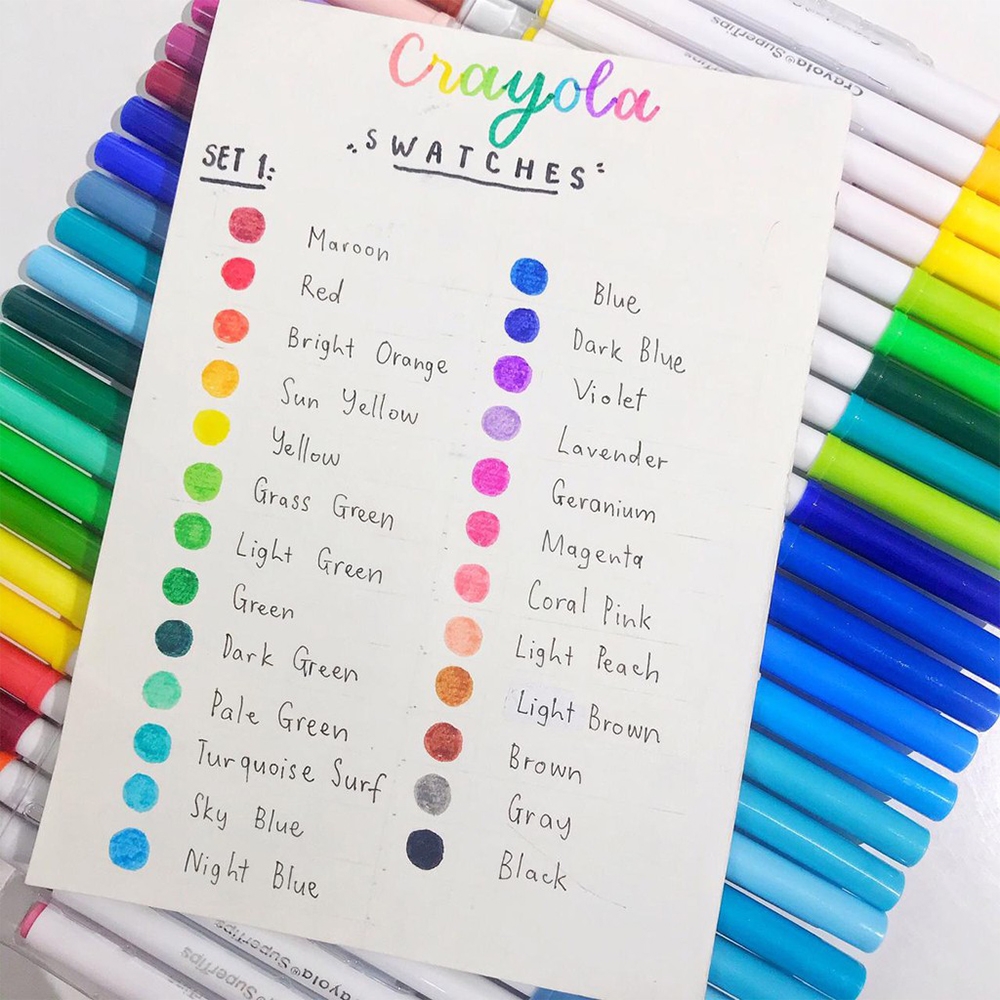 Crayola® SuperTips
Crayola® SuperTips
Crayola
SWATCHES
SET 1:
Maroon
Red
Bright Orange
Sun Yellow
Yellow
Grass Green
Light Green
Green
Dark Green
Pale Green
Turquoise Surf
Sky Blue
Night Blue
Blue
Dark Blue
Violet
Lavender
Geranium
Magenta
Coral Pink
Light Peach
Light Brown
Brown
Gray
Black
Crayola® SuperTips
Crayola® SuperTips